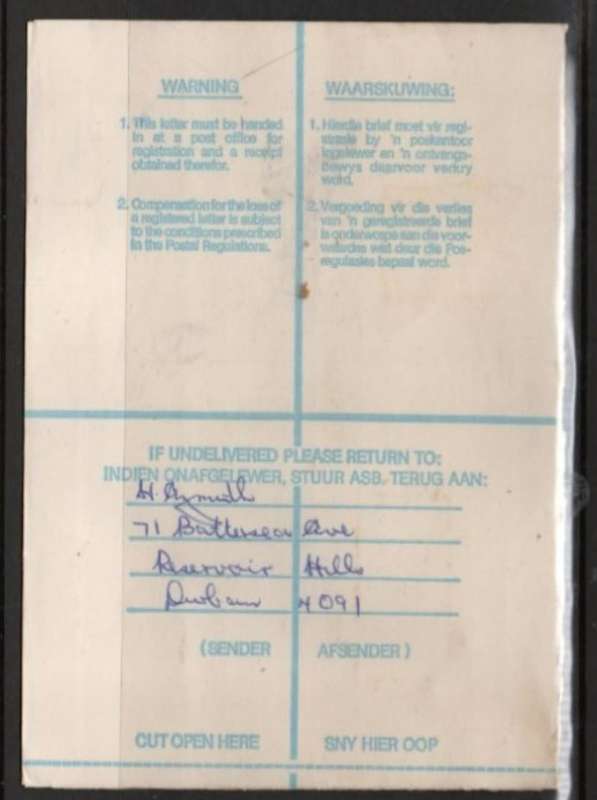 WARNING
1. This letter must be handed
in at a post office for
registration and a receipt
obtained therefor.
2. Compensation for the loss of
a registered letter is subject
to the conditions prescribed
in the Postal Regulations.
WAARSKUWING:
1. Hierdie brief moet vir regi-
strasie by 'n poskantoor
ingelewer en 'n ontvangs-
bewys daarvoor verkry
word.
2. Vergoeding vir die verlies
van 'n geregistreerde brief
is onderworpe aan die voor-
waardes wat deur die Pos-
regulasies bepaal word.
IF UNDELIVERED PLEASE RETURN TO:
INDIEN ONAFGELEWER, STUUR ASB. TERUG AAN:
H.
71 Battersea Ave
Reservoir Hills
Durban 4091
(SENDER AFSENDER)
CUT OPEN HERE SNY HIER OOP